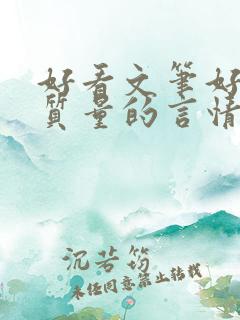 好看文笔好
质量的言情
沉芳筠
未经同意禁止转载